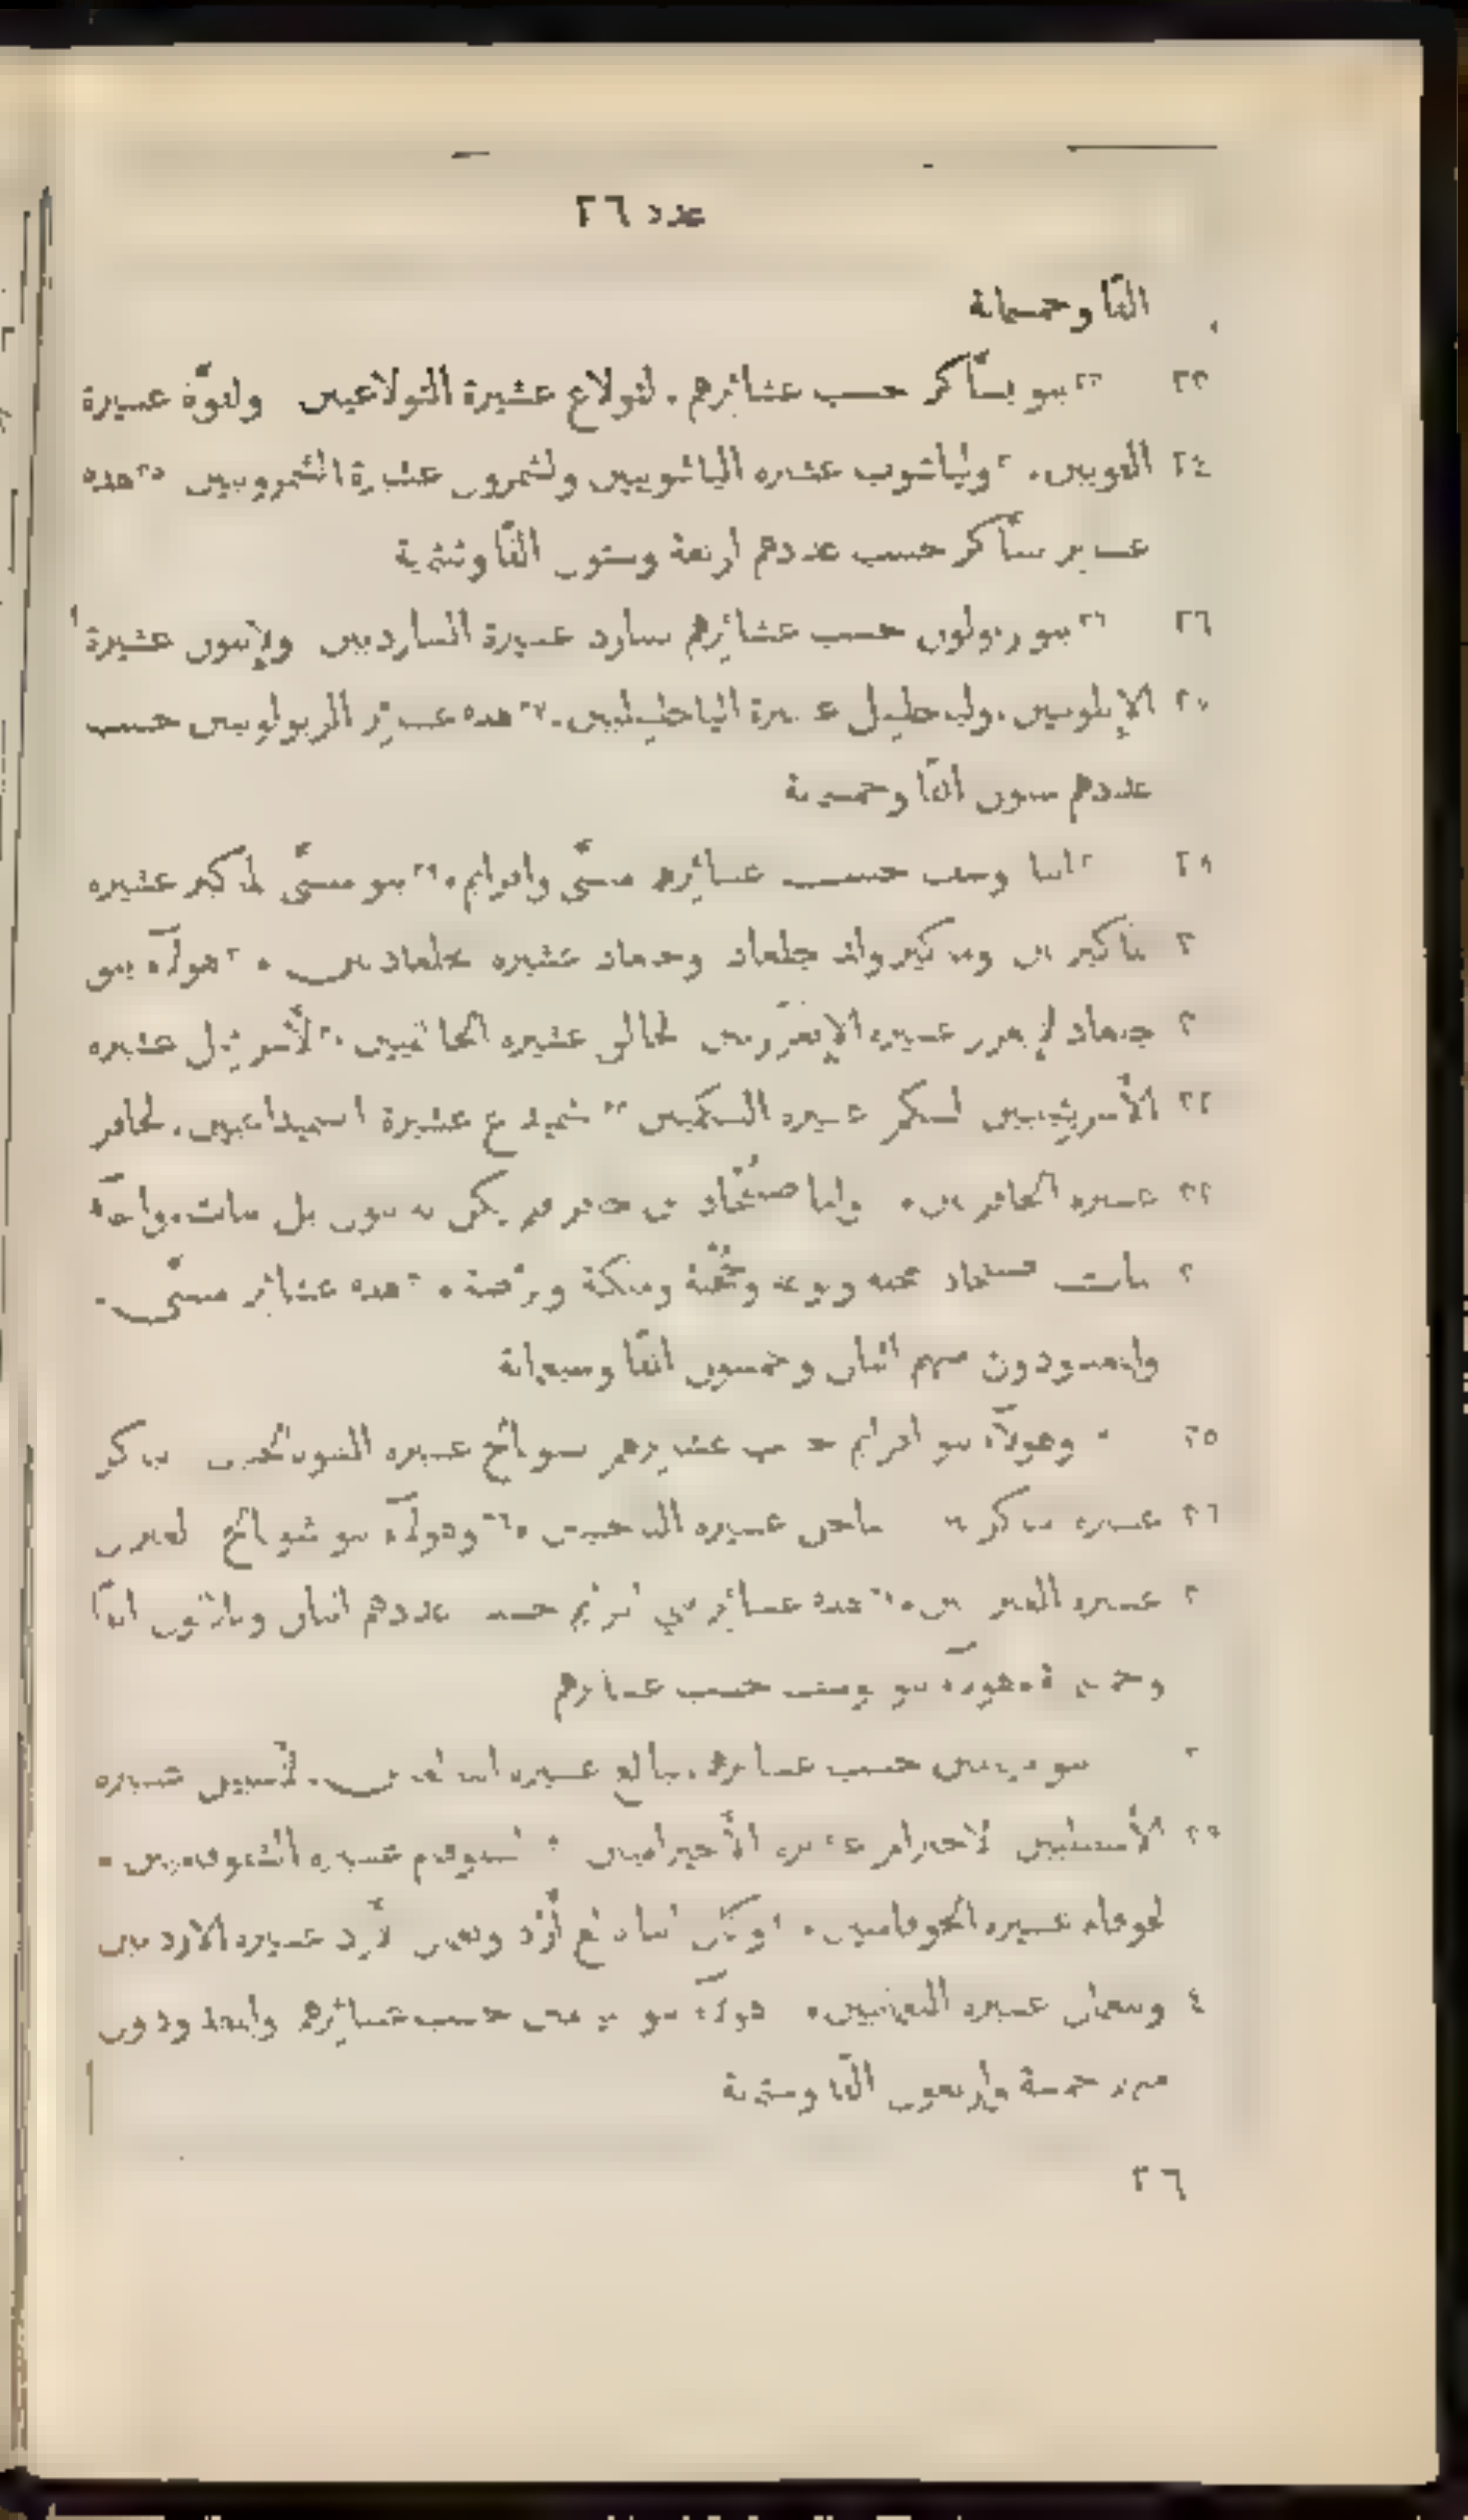 عدد ٢٦
الفًا وخمسمائة
٢٣ ٢٣ بنو يسّاكر حسب عشائرهم. لتولاع عشيرة التولاعيين ولفوّة عشيرة
٢٤ الفويين. ولياشوب عشيرة الياشوبيين ولشمرون عشيرة الشمرونيين ٢٥ هذه
عشاير يسّاكر حسب عددهم اربعة وستون الفًا وثلثمئة
٢٦ ٢٦ بنو زبولون حسب عشائرهم لسارد عشيرة السارديين ولإيلون عشيرة
الإيلونيين. ولياحلئيل عشيرة الياحلئيليين. ٢٧ هذه عشائر الزبولونيين حسب
عددهم ستون الفًا وخمسمئة
٢٨ ابنا يوسف حسب عشائرهم منسّى وافرايم. ٢٩ بنو منسّى لماكير عشيرة
الماكيريين وماكير ولد جلعاد ولجلعاد عشيرة الجلعاديين. هولآء بنو
جلعاد لإيعزر عشيرة الإيعزريين لحالق عشيرة الحالقيين لأسريئيل عشيرة
الأسريئيليين لشكم عشيرة الشكميين لشميداع عشيرة الشميداعيين. لحافر
عشيرة الحافريين. واما صلفحاد بن حافر فلم يكن له بنون بل بنات. واسمآء
بنات صلفحاد محلة ونوعة وحجلة وملكة وترصة. هذه عشائر منسّى.
والمعدودون منهم اثنان وخمسون الفًا وسبعمائة
٣٥ وهولآء بنو افرايم حسب عشائرهم لشوتالح عشيرة الشوتالحيين لباكر
عشيرة الباكريين لتاحن عشيرة التاحنيين ٣٦ وهولآء بنو شوتالح لعيران
عشيرة العيرانيين. هذه عشائر بني افرايم حسب عددهم اثنان وثلاثون الفًا
وخمسمئة. هولآء بنو يوسف حسب عشائرهم
بنو بنيامين حسب عشائرهم. لبالع عشيرة البالعيين. لأشبيل عشيرة
الأشبيليين لاحيرام عشيرة الأحيراميين لشفوفام عشيرة الشفوفاميين.
لحوفام عشيرة الحوفاميين. وكان ابنا بالع أرْد ونعمان لأرد عشيرة الارديين
ولنعمان عشيرة النعمانيين. هولآء بنو بنيامين حسب عشائرهم والمعدودون
منهم خمسة واربعون الفًا وستمئة
٢٦